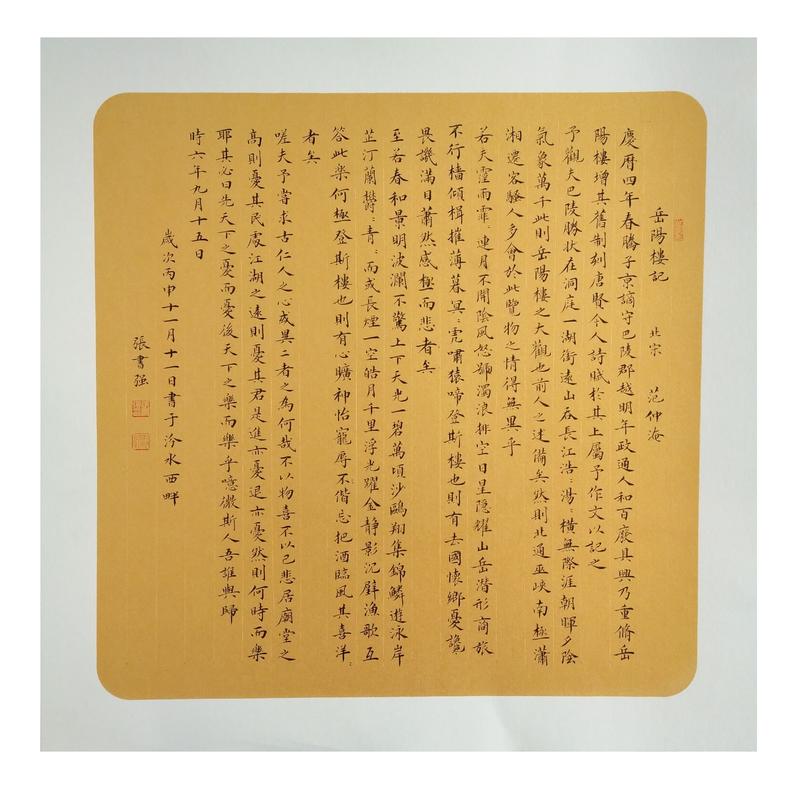 岳陽樓記 北宋 范仲淹
慶曆四年春滕子京謫守巴陵郡越明年政通人和百廢具興乃重脩岳
陽樓增其舊制刻唐賢今人詩賦於其上屬予作文以記之
予觀夫巴陵勝狀在洞庭一湖銜遠山吞長江浩:湯:橫無際涯朝暉夕陰
氣象萬千此則岳陽樓之大觀也前人之述備矣然則北通巫峽南極瀟
湘遷客騷人多會於此覽物之情得無異乎
若夫霪雨霏:連月不開陰風怒號濁浪排空日星隱耀山岳潛形商旅
不行檣傾楫摧薄暮冥:虎嘯猿啼登斯樓也則有去國懷鄉憂讒
畏譏滿目蕭然感極而悲者矣
至若春和景明波瀾不驚上下天光一碧萬頃沙鷗翔集錦鱗遊泳岸
芷汀蘭鬱:青:而或長煙一空皓月千里浮光躍金静影沉璧漁歌互
答此樂何極登斯樓也則有心曠神怡寵辱不偕忘把酒臨風其喜洋:
者矣
嗟夫予嘗求古仁人之心或異二者之為何哉不以物喜不以己悲居廟堂之
高則憂其民處江湖之遠則憂其君是進亦憂退亦憂然則何時而樂
耶其必曰先天下之憂而憂後天下之樂而樂乎噫微斯人吾誰與歸
時六年九月十五日
歲次丙申十一月十一日書于汾水西畔
張書强